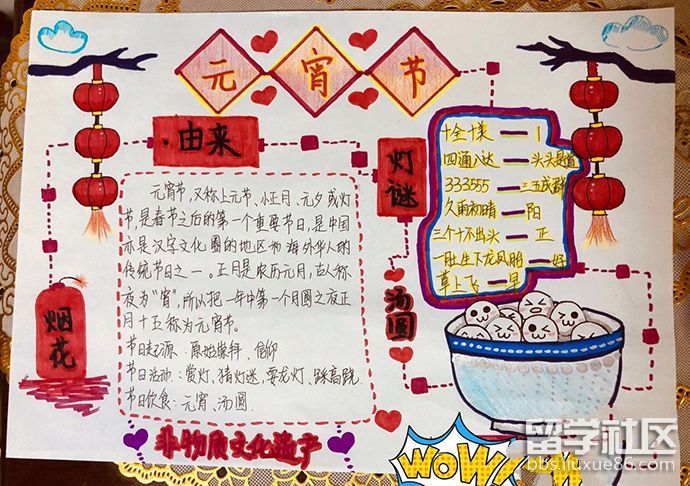 元宵节
由来
元宵节,又称上元节、小正月、元夕或灯
节,是春节之后的第一个重要节日,是中国
亦是汉字文化圈的地区和海外华人的
传统节日之一。正月是农历元月,古人称
夜为“宵”,所以把一年中第一个月圆之夜正
月十五称为元宵节。
节日起源:原始崇拜、信仰
节日活动:赏灯、猜灯迷、耍龙灯、踩高跷、
节日饮食:元宵、汤圆
烟花
非物质文化遗产
灯谜
十全十美
四通八达 — 头头是道
333555 — 三五成群
久雨初晴 — 阳
三个十不出头 — 正
一肚生下龙凤胎 — 好
草上飞 — 早
汤圆
WOW
留学社区
bbs.liuxue86.com